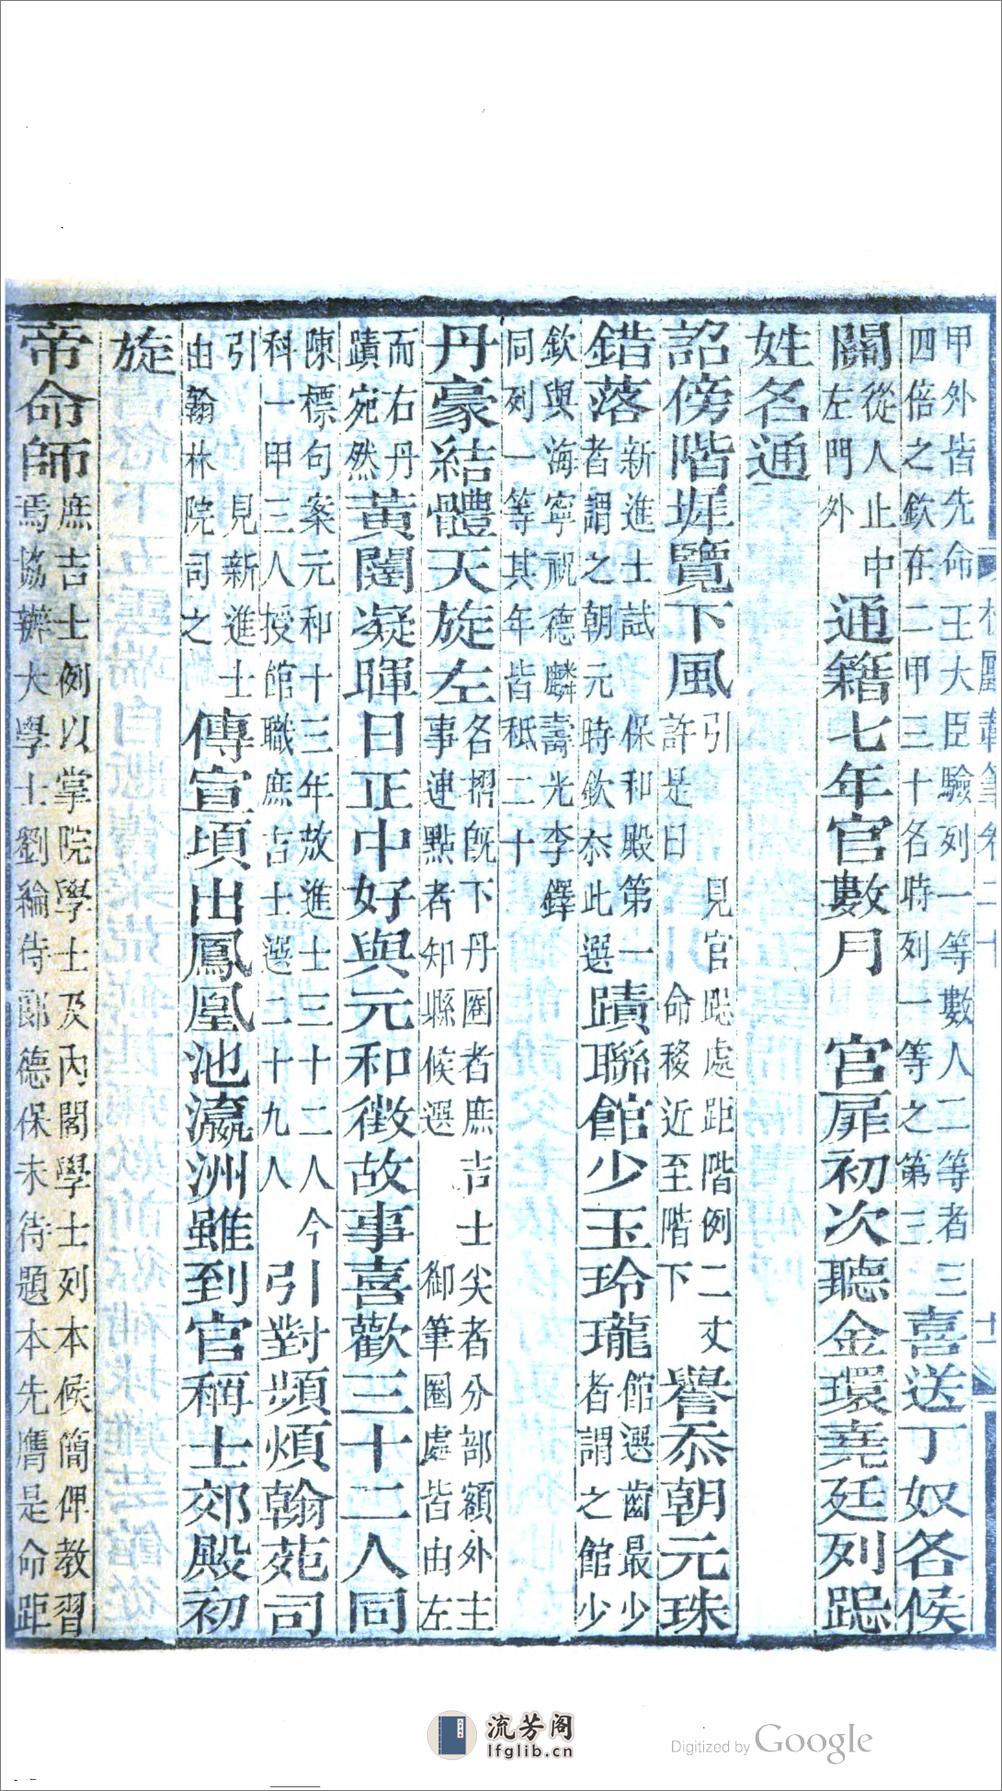 甲外皆先命王大臣驗列一等數人二等者三
四倍之欽在二甲三十名時列一等之第三
喜送丁奴各候
關
從人止中
左門外
通籍七年官數月 宮扉初次聽金環堯廷列跽
姓名通
詔傍階墀覽下風
引 見官跽處距階例二丈
許是日 命移近至階下
譽忝朝元珠
錯落
新進士試保和殿第一
者謂之朝元時欽忝此選
蹟聯館少玉玲瓏
館選齒最少
者謂之館少
欽與海寧祝德麟壽光李鐸
同列一等其年皆秪二十
丹豪結體天旋左
各摺既下丹圈者庶吉士尖者分部額外主
事連點者知縣候選 御筆圈處皆由左
而右丹
蹟宛然
黃閣凝暉日正中好與元和徵故事喜歡三十二人同
陳標句案元和十三年放進士三十二人今
科一甲三人授館職庶吉士選二十九人
引對頻煩翰苑司
引 見新進士
由翰林院司之
傳宣頃出鳳凰池瀛洲雖到官稱士郊殿初
旋
帝命師
庶吉士例以掌院學士及內閣學士列本候簡俾教習
焉協辦大學士劉綸侍郎德保未待題本先膺是命距
流芳阁
lfglib.cn
Digitized by Google